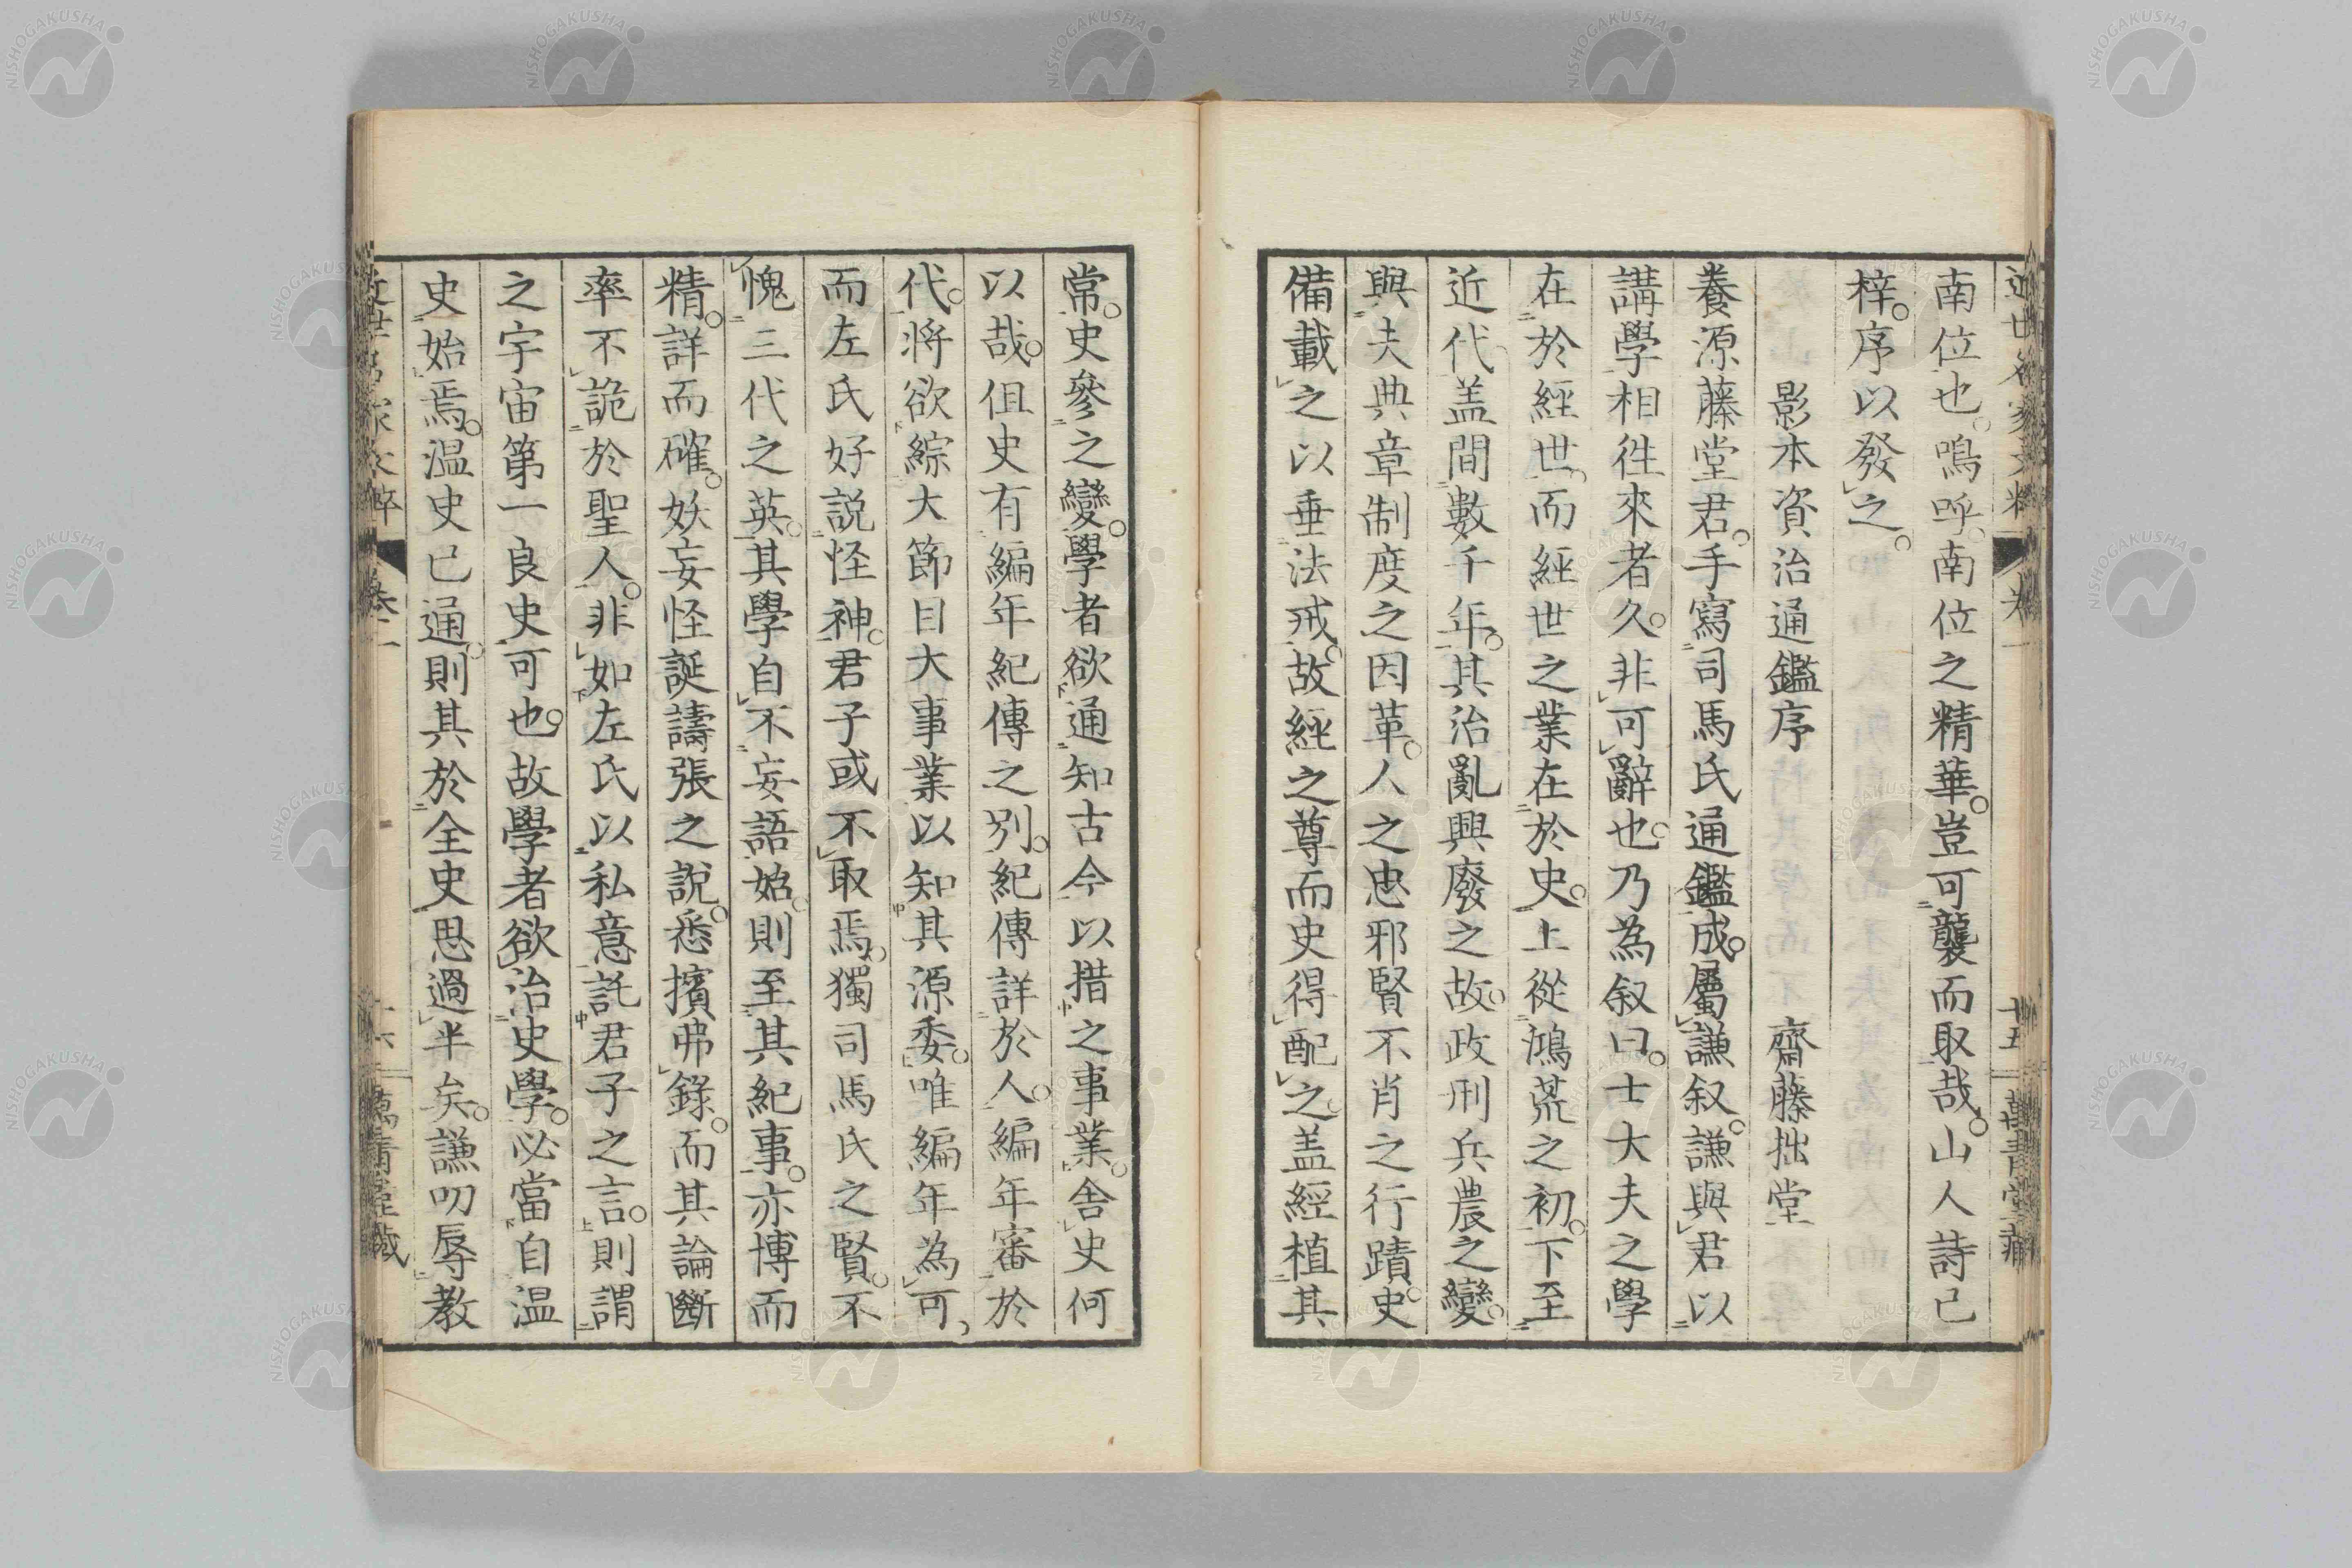 近世名家文粹 卷一 十五 萬青堂藏
南位也。嗚呼。南位之精華。豈可襲而取哉。山人詩已
梓。序以發之。
影本資治通鑑序 齋藤拙堂
養源藤堂君。手寫司馬氏通鑑成。屬謙叙。謙與君以
講學相徃來者久。非可辭也。乃為叙曰。士大夫之學
在於經世。而經世之業在於史。上從鴻荒之初。下至
近代。盖間數千年。其治亂興廢之故。政刑兵農之變。
與夫典章制度之因革。人之忠邪賢不肖之行蹟。史
備載之以垂法戒。故經之尊而史得配之。盖經植其
常。史參之變。學者欲通知古今以措之事業。舍史何
以哉。但史有編年紀傳之別。紀傳詳於人。編年審於
代。將欲綜大節目大事業以知其源委。唯編年為可、
而左氏好説怪神。君子或不取焉。獨司馬氏之賢。不
愧三代之英。其學自不妄語始。則至其紀事。亦博而
精。詳而確。妖妄怪誕譸張之說。悉擯弗錄。而其論斷
率不詭於聖人。非如左氏以私意託君子之言。則謂
之宇宙第一良史可也。故學者欲治史學。必當自温
史始焉。温史已通。則其於全史思過半矣。謙叨辱教
近世名家文粹 卷一 十六 萬青堂藏
NISHOGAKUSHA